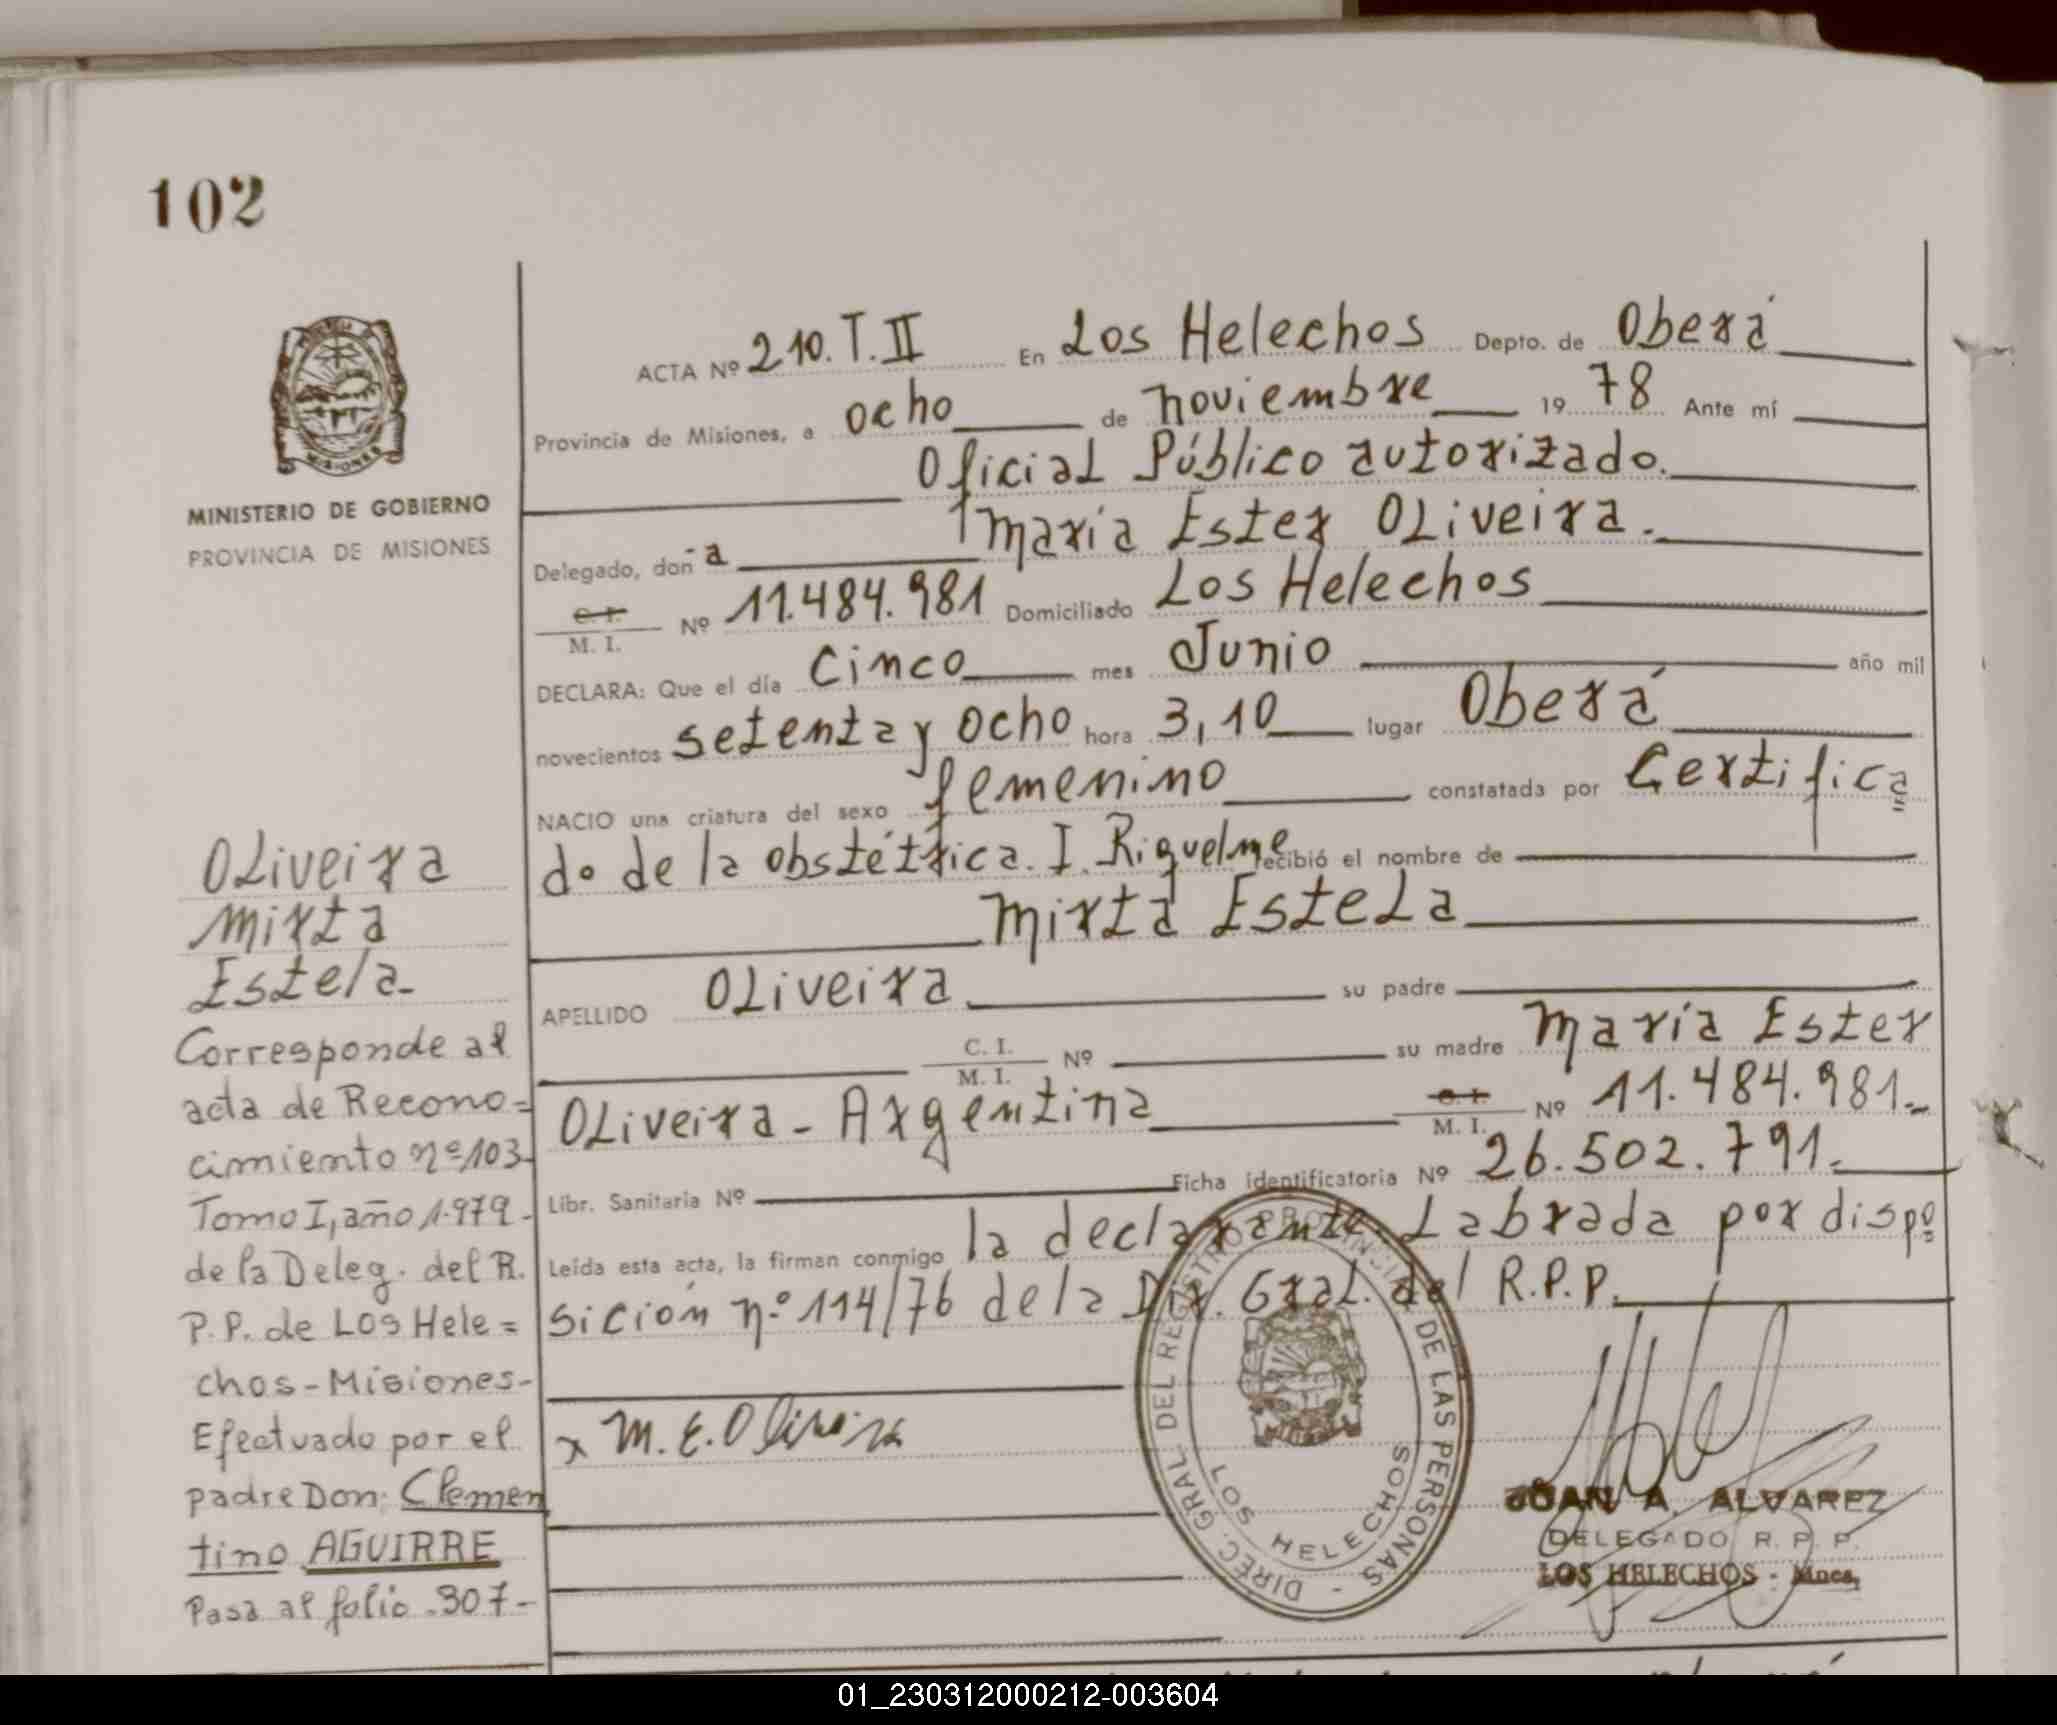 102
MINISTERIO DE GOBIERNO
PROVINCIA DE MISIONES
ACTA Nº 210.T.II En Los Helechos Depto. de Oberá
Provincia de Misiones, a ocho de noviembre 1978 Ante mí
Oficial Público autorizado.
Delegado, doña María Ester Oliveira.
C. I. / M. I. Nº 11.484.981 Domiciliado Los Helechos
DECLARA: Que el día cinco mes Junio año mil
novecientos setenta y ocho hora 3,10 lugar Oberá
NACIO una criatura del sexo femenino constatada por Certifica
do de la obstétrica. I. Riquelme recibió el nombre de
Mirta Estela
APELLIDO Oliveira su padre
C. I. / M. I. Nº su madre María Ester
Oliveira - Argentina C. I. / M. I. Nº 11.484.981.-
Libr. Sanitaria Nº Ficha identificatoria Nº 26.502.791.
Leída esta acta, la firman conmigo la declarante. Labrada por dispo
sición n.º 114/76 de la Dir. Gral. del R.P.P.
x M. E. Oliveira
DIREC. GRAL DEL REGISTRO PROVINCIAL DE LAS PERSONAS -
LOS HELECHOS
JUAN A. ALVAREZ
DELEGADO R. P. P.
LOS HELECHOS - Mnes,
Oliveira
Mirta
Estela-
Corresponde al
acta de Recono=
cimiento nº 103-
Tomo I, año 1.979-
de la Deleg. del R.
P.P. de Los Hele=
chos-Misiones-
Efectuado por el
padre Don: Clemen
tino AGUIRRE
Pasa al folio 307-
01_230312000212-003604